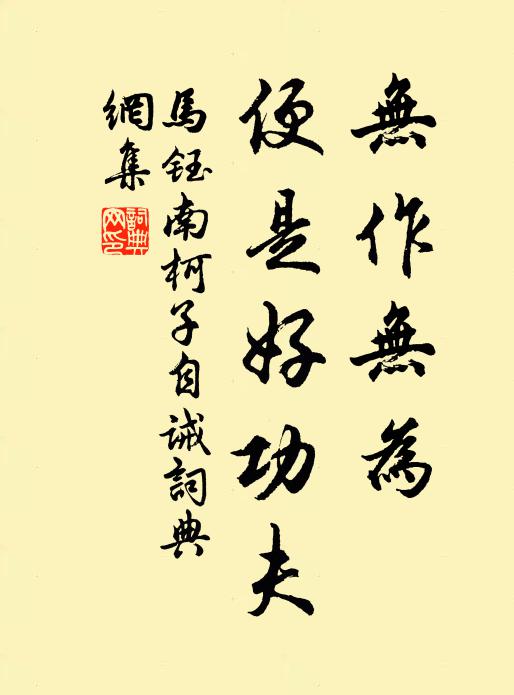 無作無為
便是好功夫
馬鈺南柯子自誡詞典
網集
詞典
网印